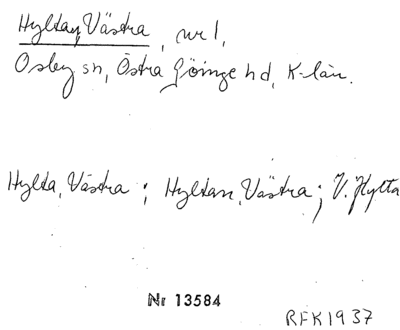 Hyltan, Västra, nr 1,
Osby sn, Östra Göinge hd, K-län.
Hylta, Västra ; Hyltan, Västra ; V. Hylta
Nr 13584
RFK1937